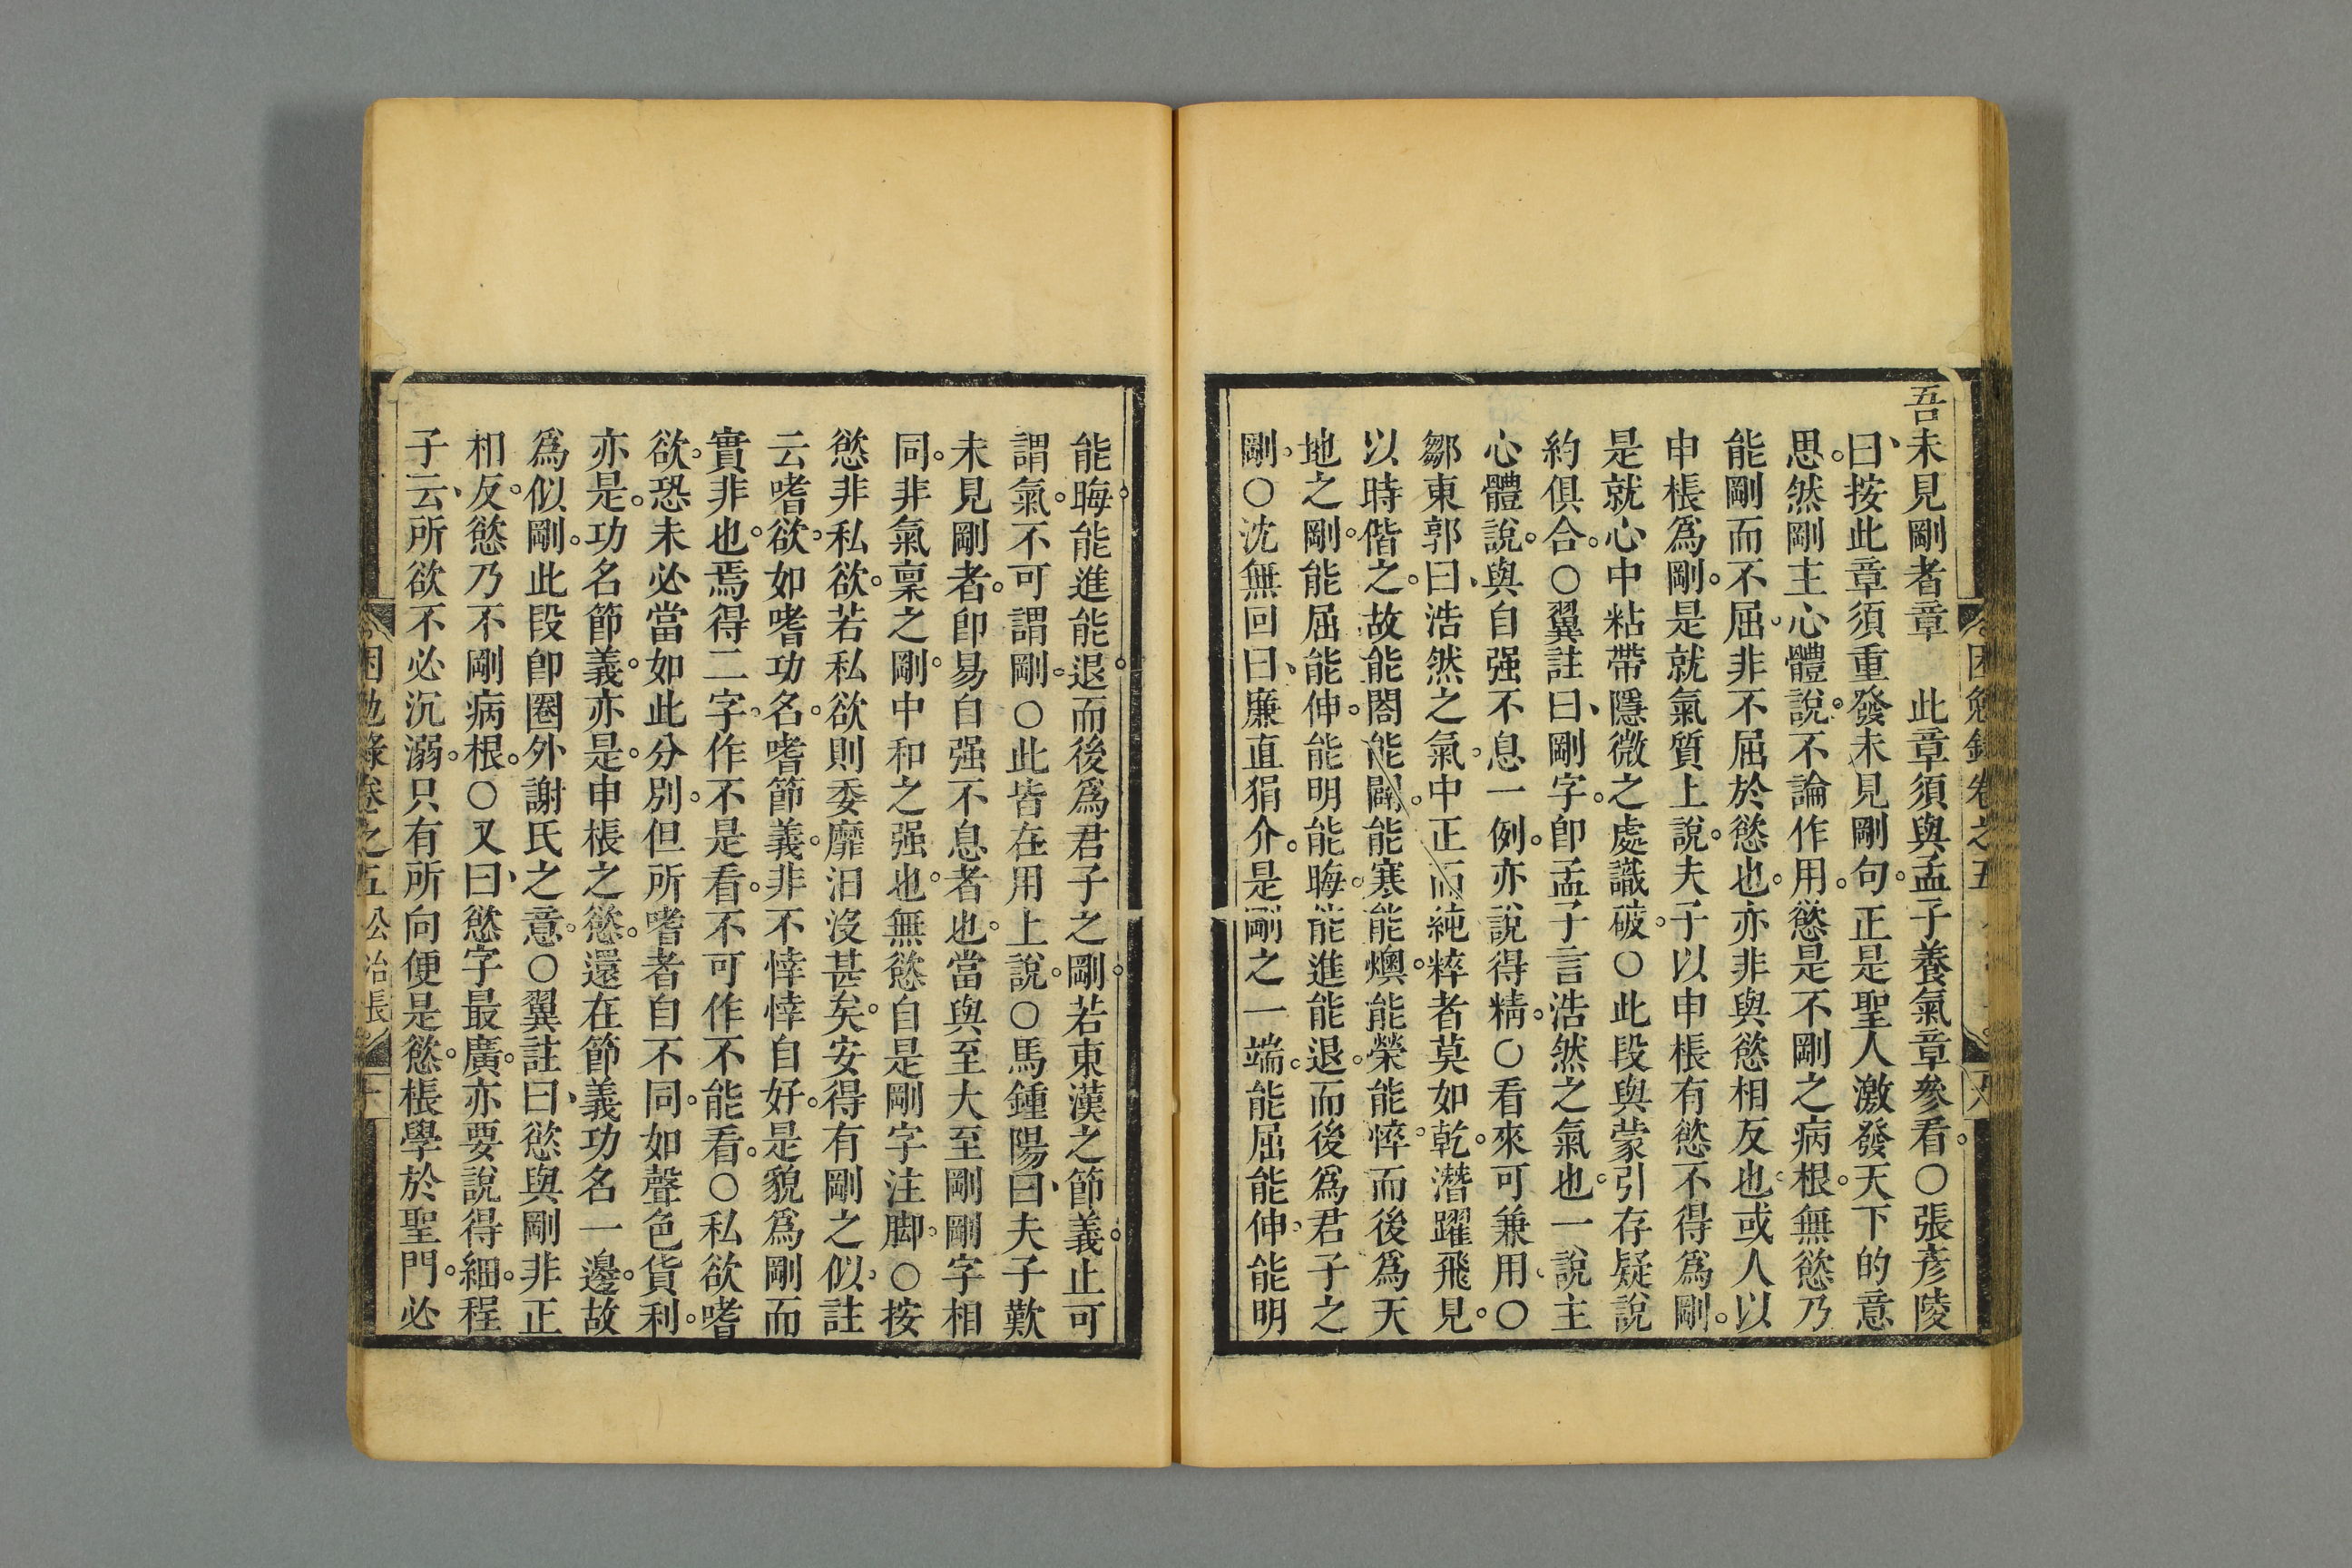 吾未見剛者章　此章須與孟子養氣章參看。○張彥陵
曰、按此章須重發未見剛句。正是聖人激發天下的意
思。然剛主心體說。不論作用。慾是不剛之病根。無慾乃
能剛而不屈。非不屈於慾也。亦非與慾相反也。或人以
申棖爲剛。是就氣質上說。夫子以申棖有慾不得爲剛。
是就心中粘帶隱微之處識破。○此段與蒙引存疑說
約俱合。○翼註曰、剛字。卽孟子言浩然之氣也。一說主
心體說。與自强不息一例。亦說得精。○看來可兼用。○
鄒東郭曰、浩然之氣。中正而純粹者莫如乾。潛躍飛見。
以時偕之。故能闔能闢。能寒能燠。能榮能悴。而後爲天
地之剛。能屈能伸。能明能晦。能進能退。而後爲君子之
剛。○沈無回曰、廉直狷介。是剛之一端。能屈能伸。能明
能晦。能進能退。而後爲君子之剛。若東漢之節義。止可
謂氣。不可謂剛。○此皆在用上說。○馬鍾陽曰、夫子歎
未見剛者。卽易自强不息者也。當與至大至剛剛字相
同。非氣稟之剛。中和之强也。無慾自是剛字注脚。○按
慾非私欲。若私欲則委靡汨沒甚矣。安得有剛之似。註
云嗜欲。如嗜功名。嗜節義。非不悻悻自好。是貌爲剛而
實非也。焉得二字。作不是看。不可作不能看。○私欲嗜
欲。恐未必當如此分別。但所嗜者自不同。如聲色貨利。
亦是。功名節義。亦是。申棖之慾。還在節義功名一邊。故
爲似剛。此段卽圈外謝氏之意。○翼註曰、慾與剛非正
相反。慾乃不剛病根。○又曰、慾字最廣。亦要說得細。程
子云、所欲不必沉溺。只有所向便是慾。棖學於聖門。必
困勉錄卷之五
困勉錄卷之五　公冶長